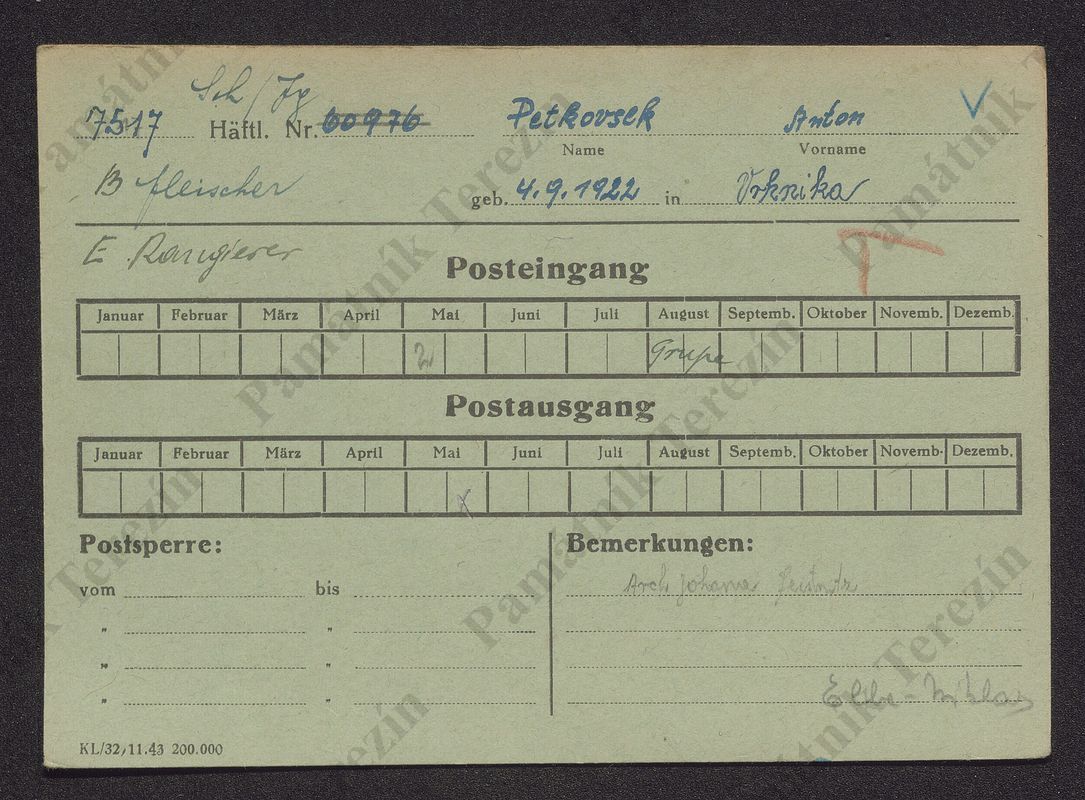 Sch/Jg
7517 Häftl. Nr. 60976 Petkovsek Anton
Name Vorname
B fleischer geb. 4.9.1922 in Vrhnika
E Rangierer
Posteingang
Januar Februar März April Mai Juni Juli August Septemb. Oktober Novemb. Dezemb.
2 Grupa
Postausgang
Januar Februar März April Mai Juni Juli August Septemb. Oktober Novemb. Dezemb.
x
Postsperre: Bemerkungen:
vom bis
Arch Johana
" "
" "
" "
KL/32,11.43 200.000
Památník Terezín